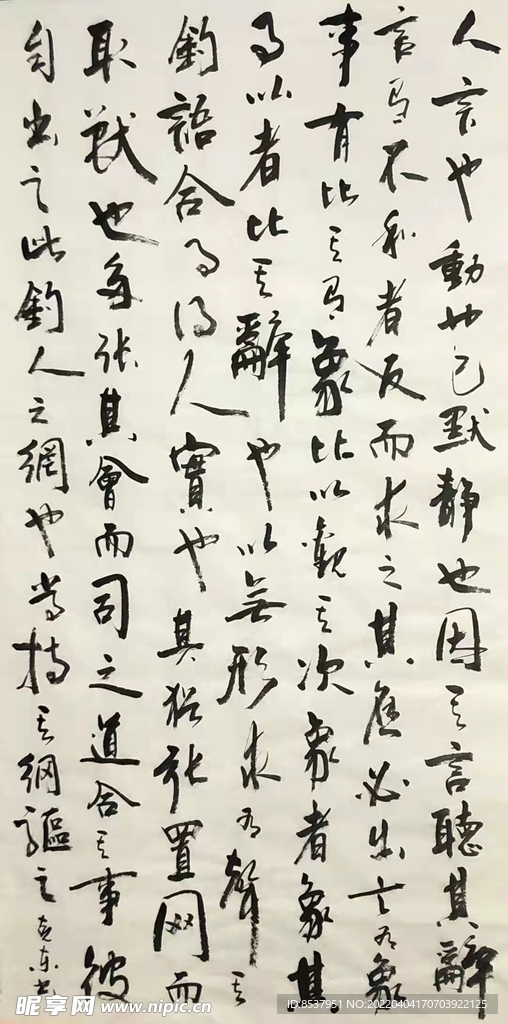 人言也動也己默静也因其言聽其辭
言有不和者反而求之其應必出言有象
事有比其有象比以觀其次象者象其
事以者比其辭也以無形求有聲其
釣語合事得人實也其猶張置网而
取獸也多張其會而司之道合其事彼
自出之此釣人之網也常持其網驅之
昵享网 www.nipic.cn
ID:8537951 NO:20220404170703922125